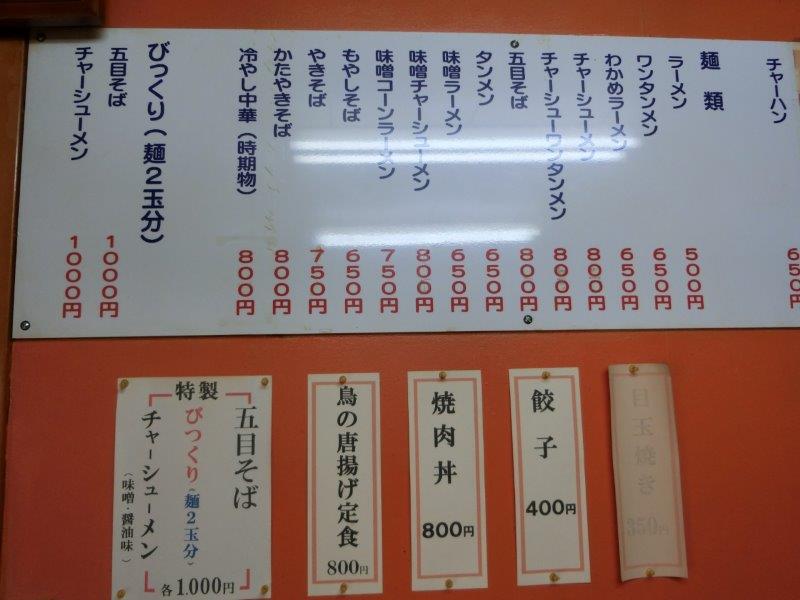 チャーハン 650円
麺類
ラーメン 500円
ワンタンメン 650円
わかめラーメン 650円
チャーシューメン 800円
チャーシューワンタンメン 800円
五目そば 800円
タンメン 650円
味噌ラーメン 650円
味噌チャーシューメン 800円
味噌コーンラーメン 750円
もやしそば 650円
やきそば 750円
かたやきそば 800円
冷やし中華（時期物） 800円
びっくり（麺２玉分）
五目そば 1000円
チャーシューメン 1000円
特製
五目そば
びつくり（麺２玉分）
チャーシューメン
（味噌・醤油味）
各1.000円
鳥の唐揚げ定食
800円
焼肉丼
800円
餃子
400円
目玉焼き
350円